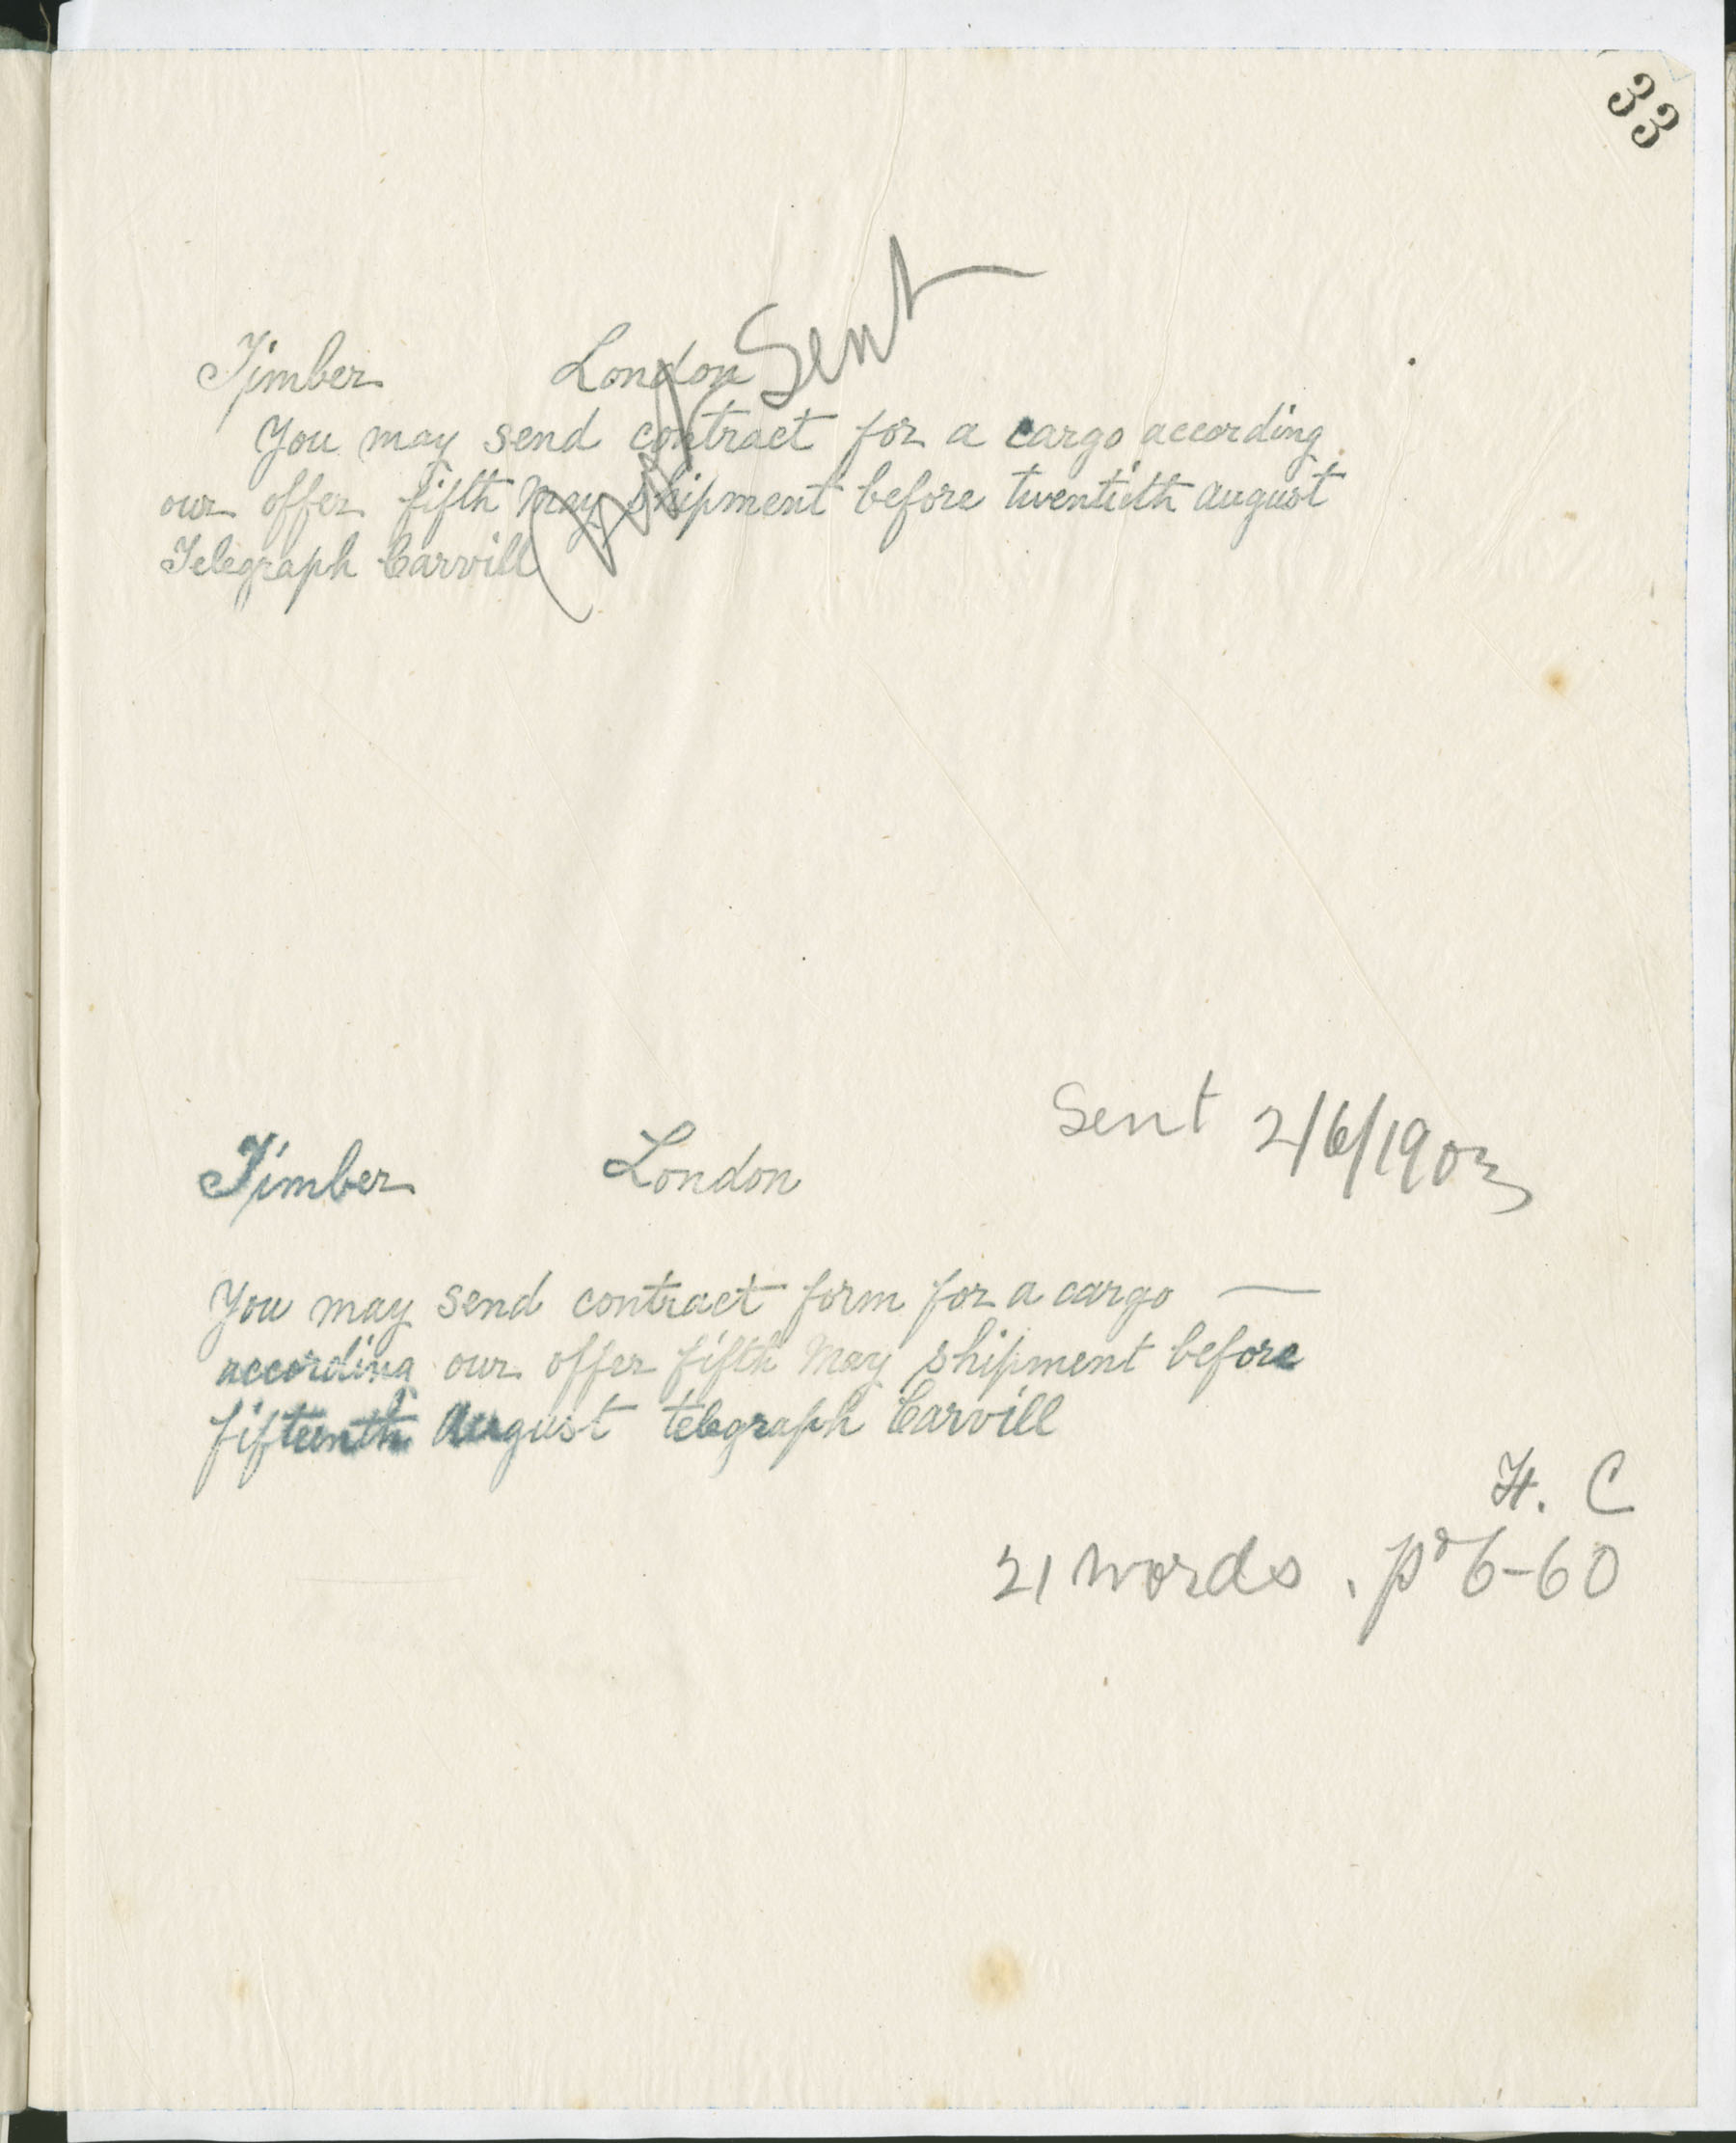 33
Not Sent
Timber London
You may send contract for a cargo according
our offer fifth May shipment before twentieth august
Telegraph Carvill
Sent 2/6/1903
Timber London
You may send contract form for a cargo —
according our offer fifth May shipment before
fifteenth August telegraph Carvill
H. C
21 words . po 6-60